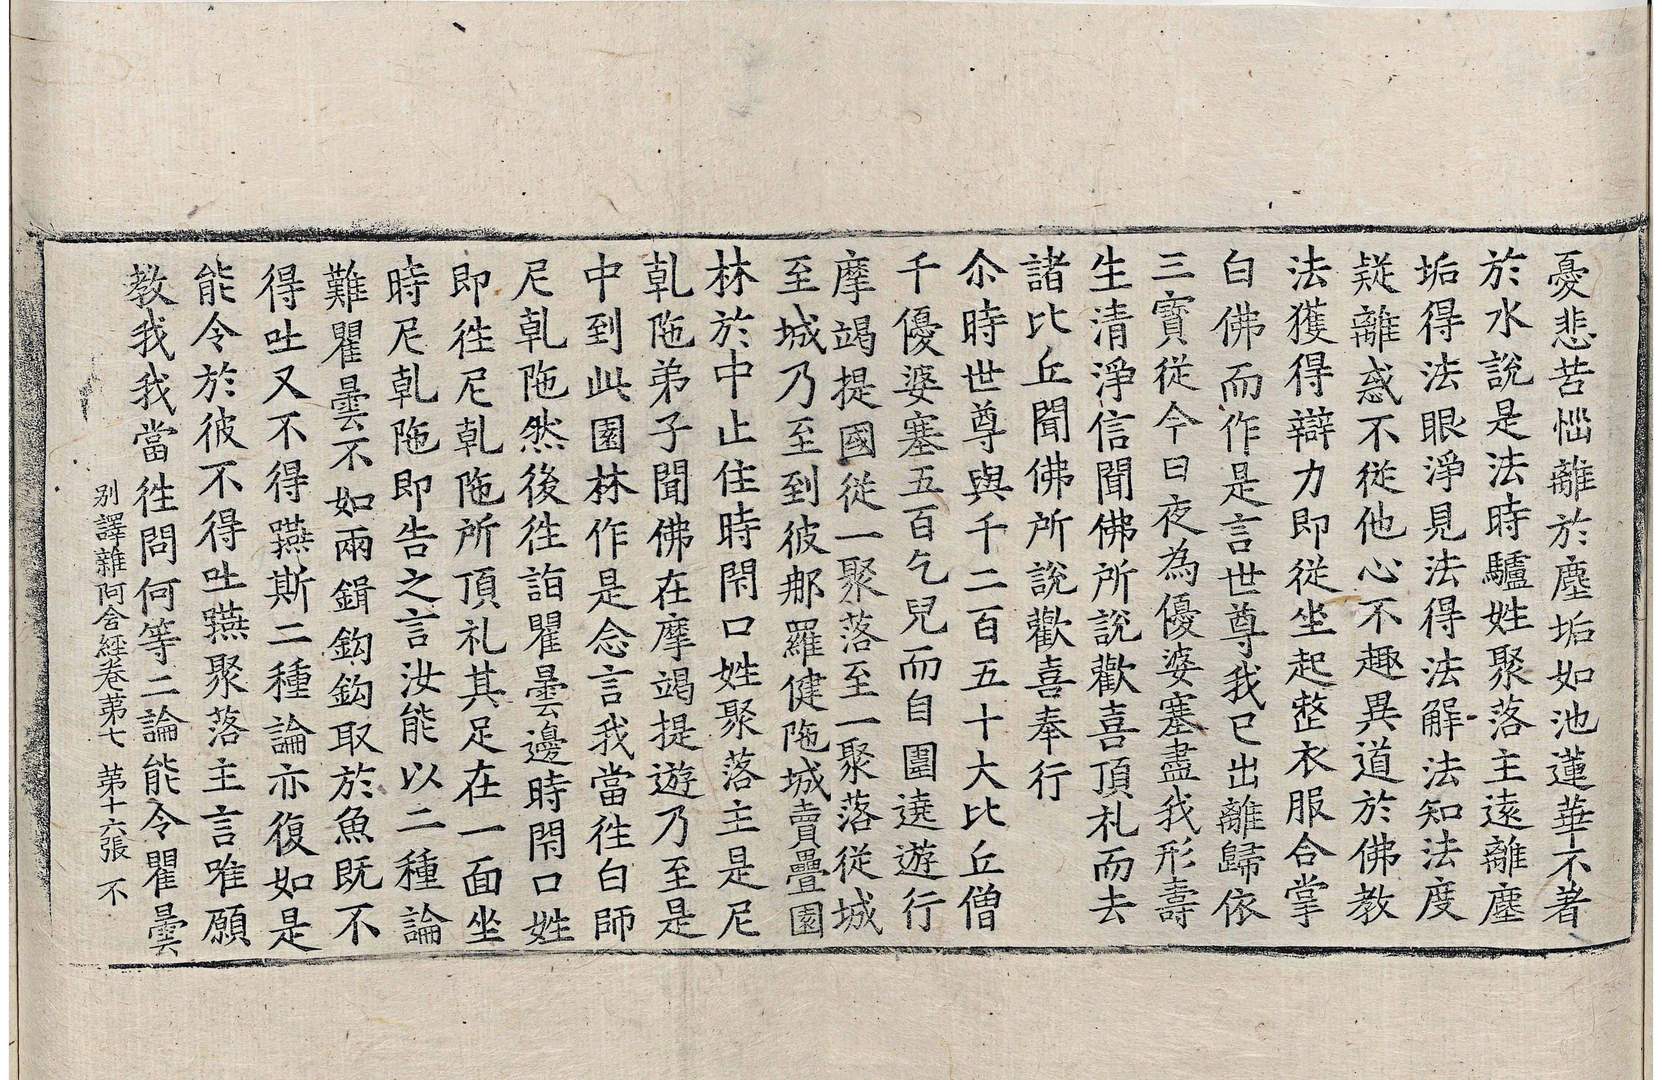 憂悲苦惱離於塵垢如池蓮華不著
於水說是法時驢姓聚落主遠離塵
垢得法眼淨見法得法解法知法度
疑離惑不從他心不趣異道於佛教
法獲得辯力即從坐起整衣服合掌
白佛而作是言世尊我已出離歸依
三寶從今日夜為優婆塞盡我形壽
生清淨信聞佛所說歡喜頂札而去
諸比丘聞佛所說歡喜奉行
尒時世尊與千二百五十大比丘僧
千優婆塞五百乞兒而自圍遶遊行
摩竭提國從一聚落至一聚落從城
至城乃至到彼郍羅健陁城賣疊園
林於中止住時閇口姓聚落主是尼
乹陁弟子聞佛在摩竭提遊乃至是
中到此園林作是念言我當徃白師
尼乹陁然後徃詣瞿曇邊時閇口姓
即徃尼乹陁所頂礼其足在一面坐
時尼乹陁即告之言汝能以二種論
難瞿曇不如兩鍓鈎鈎取於魚既不
得吐又不得䴏斯二種論亦復如是
能令於彼不得吐䴏聚落主言唯願
教我我當徃問何等二論能令瞿曇
別譯雜阿含經卷苐七 苐十六張 不